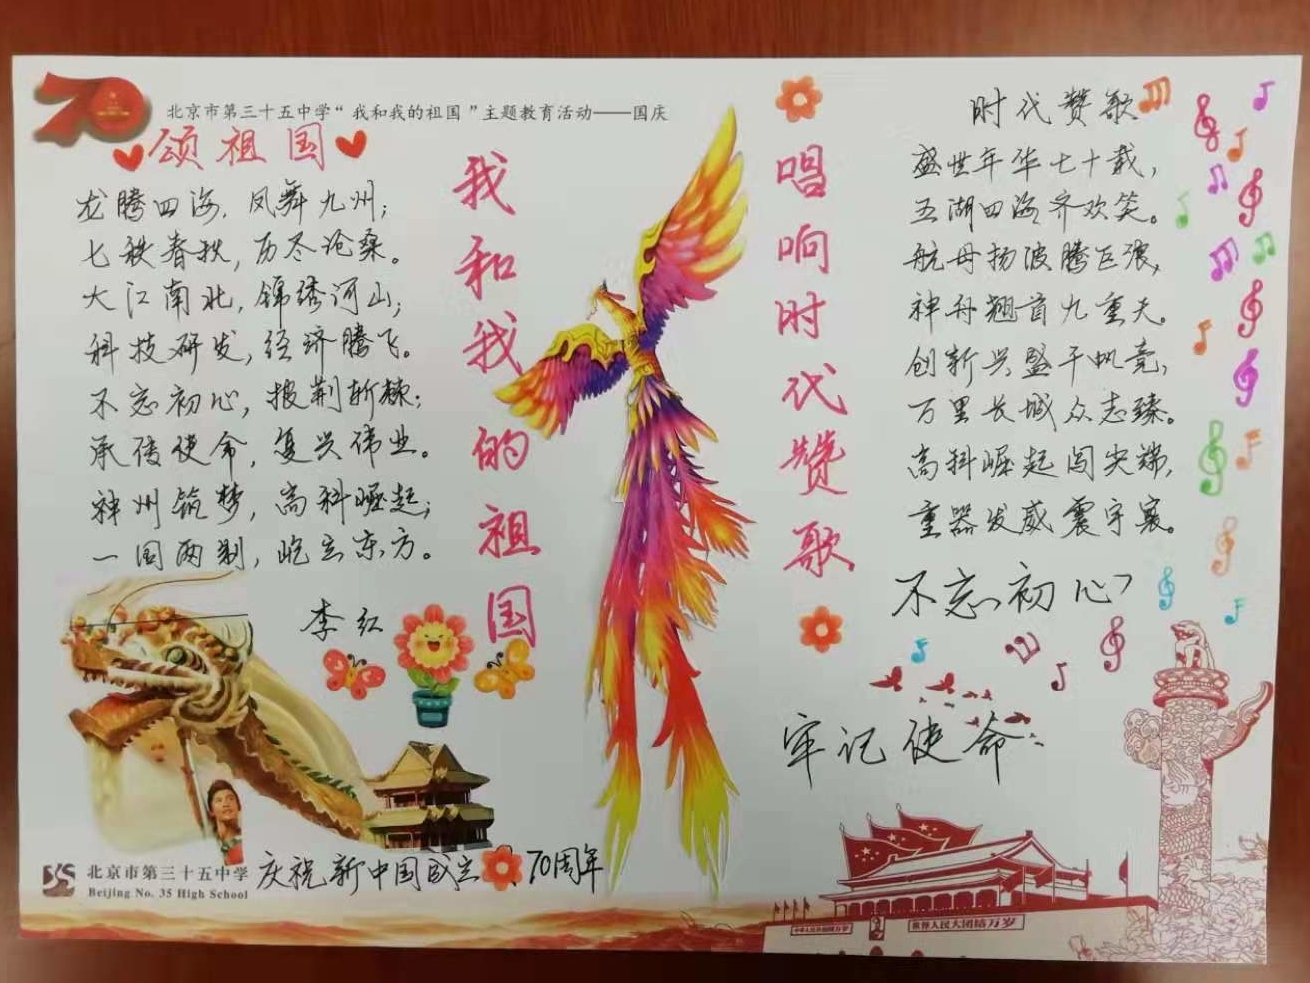 70
北京市第三十五中学“我和我的祖国”主题教育活动——国庆
颂祖国
龙腾四海,凤舞九州;
七秩春秋,历尽沧桑。
大江南北,锦绣河山;
科技研发,经济腾飞。
不忘初心,披荆斩棘;
承传使命,复兴伟业。
神州筑梦,高科崛起;
一国两制,屹立东方。
李红
我和我的祖国
唱响时代赞歌
时代赞歌
盛世年华七十载,
五湖四海齐欢笑。
航母扬波腾巨浪,
神舟翘首九重天。
创新兴盛千帆竞,
万里长城众志臻。
高科崛起闯尖端,
重器发威震宇寰。
不忘初心
牢记使命
北京市第三十五中学
Beijing No. 35 High School
庆祝新中国成立70周年
中华人民共和国万岁
世界人民大团结万岁